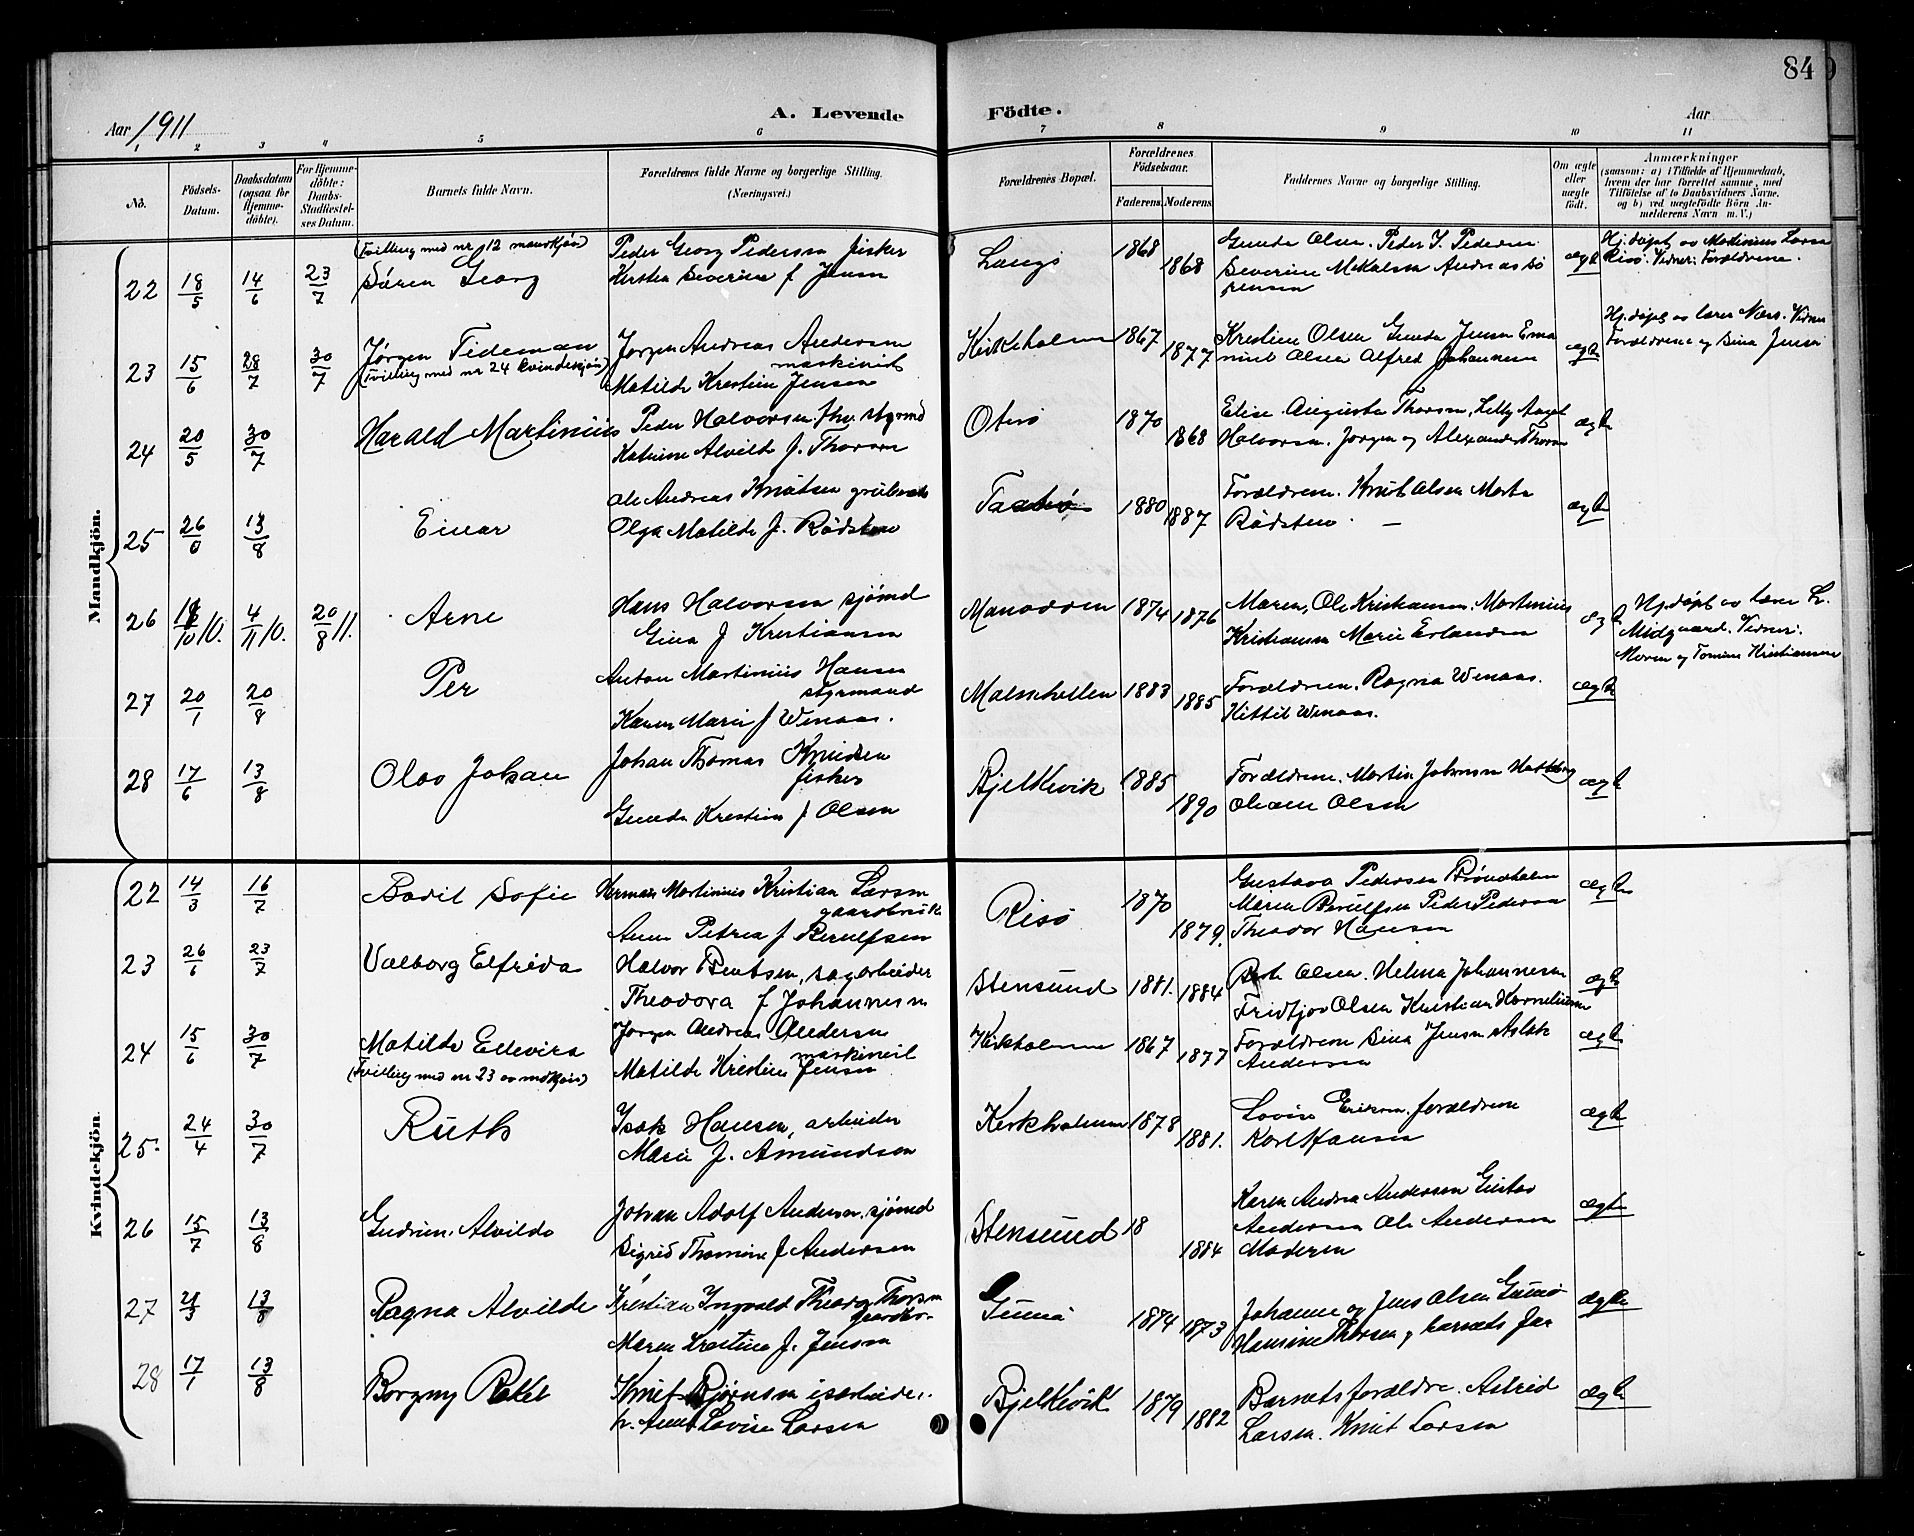 84
Aar 1911
A. Levende Födte.
Aar
1 2 3 4 5 6 7 8 9 10 11
No.
Födsels-Datum.
Daabsdatum (ogsaa for Hjemme-döbte).
For Hjemme-döbte: Daabs-Stadfæstel-ses Datum.
Barnets fulde Navn.
Forældrenes fulde Navne og borgerlige Stilling. (Næringsvei.)
Forældrenes Bopæl.
Forældrenes Födselsaar.
Faderens. Moderens.
Faddernes Navne og borgerlige Stilling.
Om ægte eller uægte födt.
Anmærkninger
(saasom: a) i Tilfælde af Hjemmedaab, hvem der har forrettet samme, med Tilföielse af to Daabsvidners Navne, og b) ved uægtefödte Börn An-melderens Navn m. V.)
Mandkjön.
(Tvilling med nr 12 mandkjøn)
22 18/5 14/6 23/7 Søren Georg
Peder Georg Pedersen fisker
Kirsten Severine f Jensen
Langø 1868 1868
Gunda Olsen. Peder J. Pedersen
Severine Mikalsen Andreas Sø
rensen
ægte
Hj.døpt av Martinius Larsen
Risø. Vidner: Forældrene.
23 15/6 28/7 30/7 Jørgen Tideman
(Tvilling med nr 24 kvindekjøn)
Jørgen Andreas Andersen
maskinist
Matilde Kristine Jensen
Kirkholmen 1867 1877
Kristine Olsen Gunda Jensen Ema
nuel Olsen Alfred Johannesen
ægte
Hj.døpt av lærer Næss. Vidner
Forældrene og Sina Jensen
24 20/5 30/7 Harald Martinius
Peder Halvorsen, fhv. styrmd
Katrine Alvilde f. Thorsen
Oterø 1870 1868
Elise Augusta Thorsen, Lilly Aagot
Halvorsen. Jørgen og Alexander Thorsen
ægte
25 26/6 13/8 Einar
Ole Andreas Knutsen
Olga Matilde f. Rødsten
Taatø 1880 1887
Forældrene. Knut Olsen Marta
Rødsten. —
ægte
26 10. 4/11 10. 20/8 11. Arne
Hans Halvorsen sjømd
Gina f Kristiansen
1874 1876
Maren, Ole Kristiansen, Martinius
Kristiansen Marie Erlandsen
ægte
Hj.døpt av lærer L.
Midgaard. Vidner:
Maren og Tomine Kristiansen
27 20/1 20/8 Per
Anton Martinius Hansen
styrmand
Karen Marie f Winaas.
1883 1885
Forældrene. Ragna Winaas.
Kittil Winaas.
ægte
28 17/6 13/8 Olav Johan
Johan Thomas Knudsen
fisker
Gunda Kristine f Olsen
Bjelkevik 1885 1890
Forældrene. Martin Johnsen
Olsen
ægte
Kvindekjön.
22 14/3 16/7 Bodil Sofie
Herman Martinius Kristian Larsen
gaardbruk
Anne Petrea f Berulfsen
Risø 1870 1879.
Gustava Pedersen Brøndholm
Maren Berulfsen Peder Pedersen
Theodor Hansen
ægte
23 26/6 23/7 Valborg Elfrida
Halvor Bentsen, sagarbeider
Theodora f Johannesen
Stensund 1881. 1884
Olsen. Helena Johannesen
Fridtjov Olsen Kristian Kornelius
ægte
24 15/6 30/7 Matilde Ellevira
(Tvilling med nr 23 av mdkjøn)
Jørgen Andreas Andersen
maskinist
Matilde Kristine Jensen
Kirkholmen 1867 1877
Forældrene Sina Jensen Aslak
Andersen
ægte
25. 24/4 30/7 Ruth
Isak Hansen, arbeider
Marie f. Amundsen
Kirkholmen 1878 1881.
Lovise Eriksen. forældrene
Karl Hansen
ægte
26 15/7 13/8 Gudrun Alvilde
Johan Adolf Andersen, sjømd
Sigrid Thomine f Andersen
Stensund 18 1884
Karen Andrea Andersen Gustav
Andersen Ole Andersen
Moderen
ægte
27 21/3 13/8 Ragna Alvilde
Kristian Ingvald Theodor Thorsen
Maren Kristine f. Jensen
Gumø 1874 1873
Johanne og Jens Olsen Gumø
Hansine Thorsen og barnets far
ægte
28 17/1 13/8 Borgny Rakel
Knut Bjørnsen isarbeider.
h. Anne Lovise Larsen
Bjelkevik 1879 1882
Barnets forældre. Astrid
Larsen. Knut Larsen
ægte